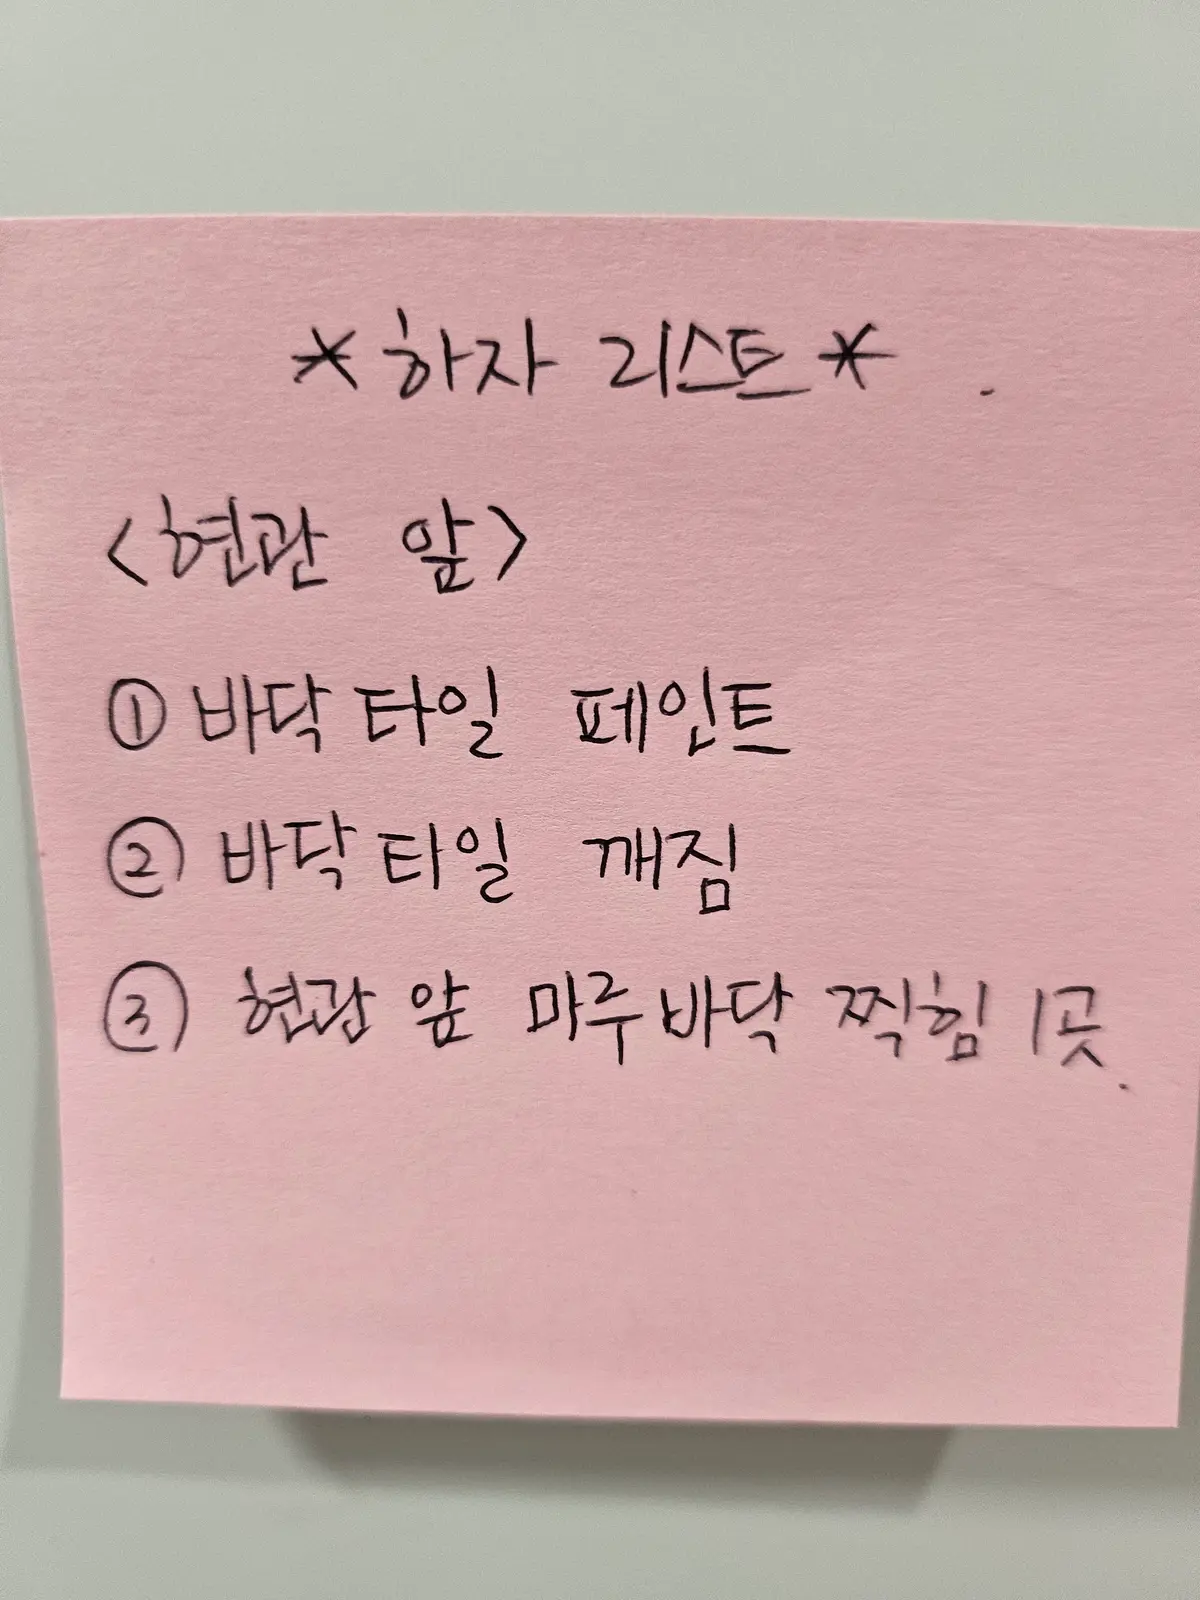 * 하자 리스트 *
<현관 앞>
① 바닥 타일 페인트
② 바닥 타일 깨짐
③ 현관 앞 마루바닥 찍힘 1곳.